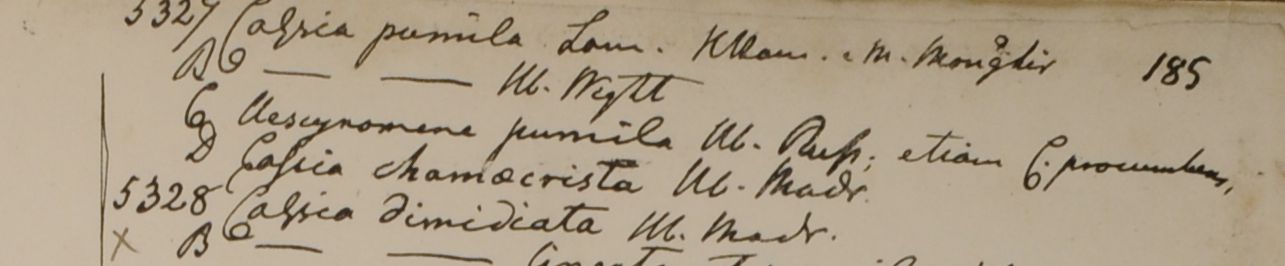 5327 Cassia pumila Lam. Ham. M. Monghir 185
B — — Hb. Wight
C Aescynomene pumila Hb. Russ. etiam C. procumbens,
D Cassia chamaecrista Hb. Madr.
5328 Cassia dimidiata Hb. Madr.
X B — —